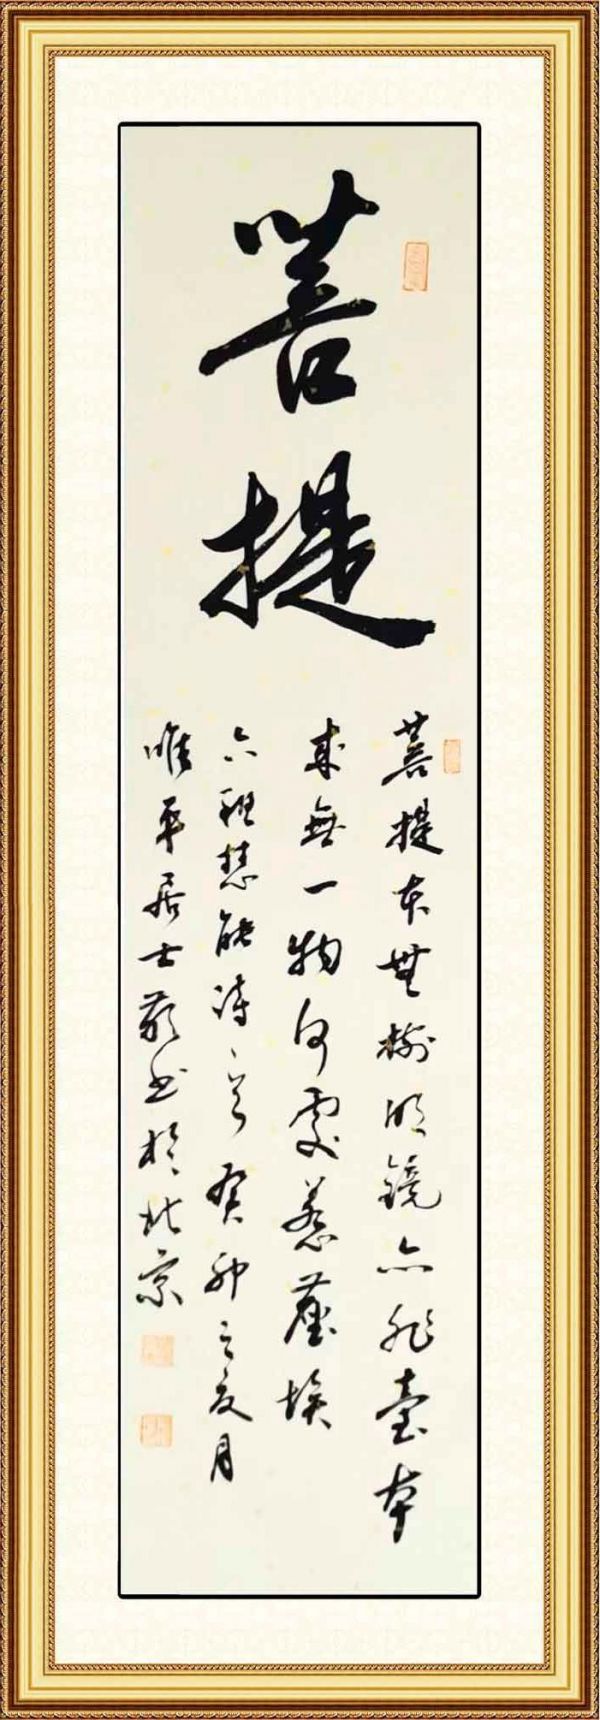 菩提
菩提本無樹明鏡亦非臺本
來無一物何處惹塵埃
六祖慧能詩之句癸卯之夏月
唯平居士敬书於北京